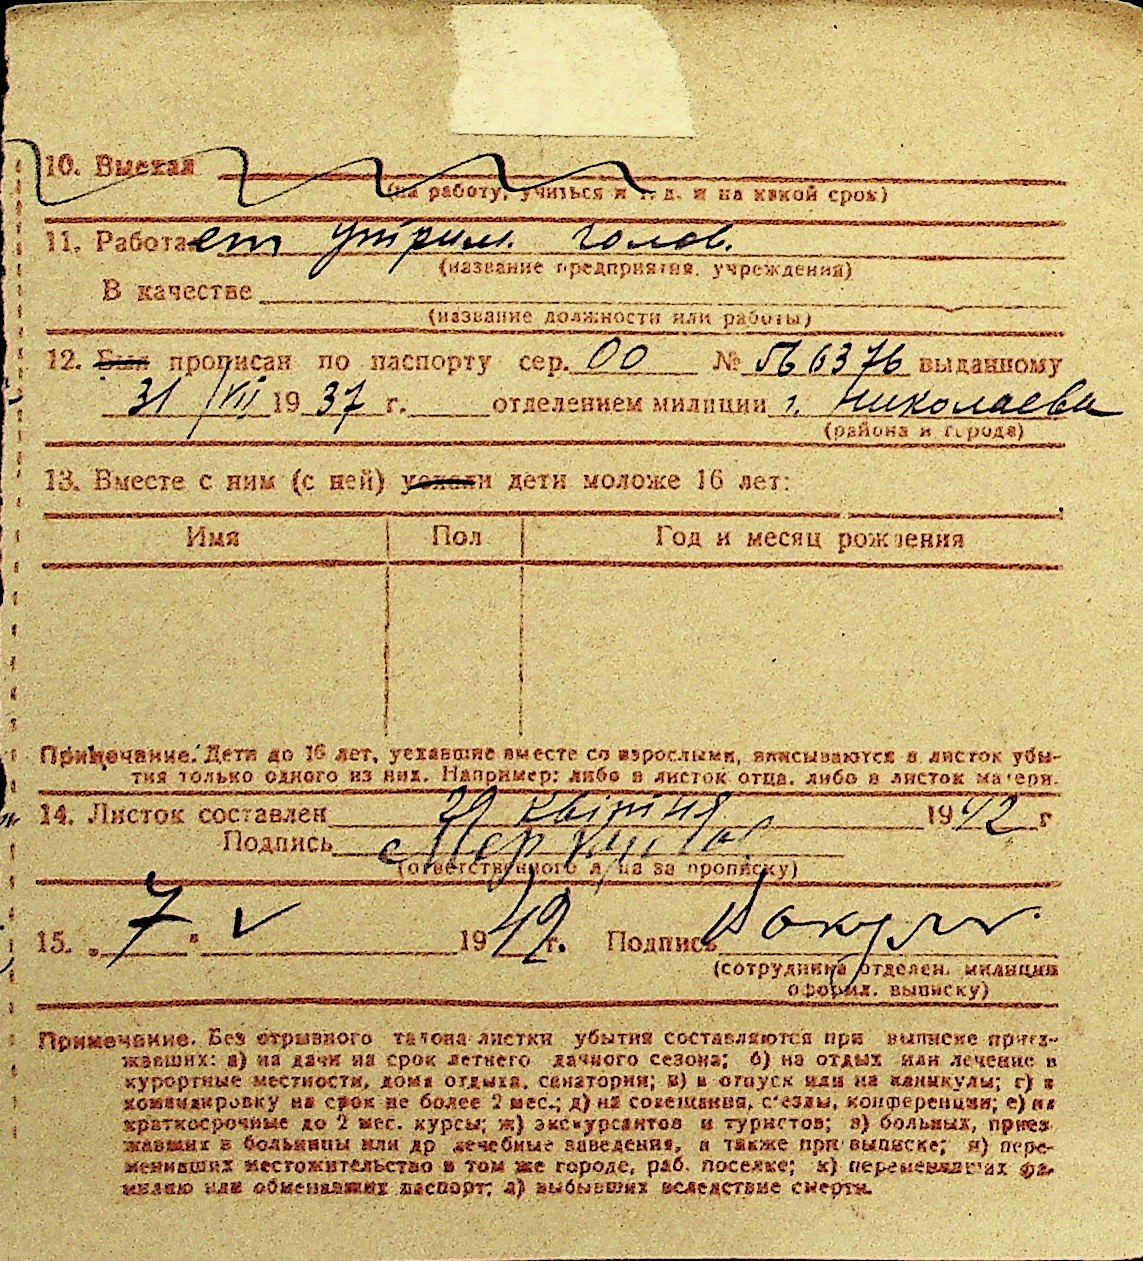 10. Выехал
(на работу, учиться и т. д. и на какой срок)
11. Работает утрим. голов.
(название предприятия, учреждения)
В качестве
(название должности или работы)
12. Был прописан по паспорту сер. 00 № 566376 выданному
31/VII 1937 г. отделением милиции г. Николаева
(района и города)
13. Вместе с ним (с ней) уехали дети моложе 16 лет:
Имя Пол Год и месяц рождения
Примечание. Дети до 16 лет, уехавшие вместе со взрослыми, вписываются в листок убы-
тия только одного из них. Например: либо в листок отца, либо в листок матери.
14. Листок составлен 29 квітня 1942 г
Подпись
(ответственного лица за прописку)
15. „7" V 1942 г. Подпись
(сотрудника отделен. милиции
оформл. выписку)
Примечание. Без отрывного талона листки убытия составляются при выписке приез-
жавших: а) на дачи на срок летнего дачного сезона; б) на отдых или лечение в
курортные местности, дома отдыха, санатории; в) в отпуск или на каникулы; г) в
командировку на срок не более 2 мес.; д) на совещания, с'езды, конференции; е) на
краткосрочные до 2 мес. курсы; ж) экскурсантов и туристов; з) больных, приез-
жавших в больницы или др лечебные заведения, а также при выписке; и) пере-
менивших местожительство в том же городе, раб. поселке; к) переменивших фа-
милию или обменявших паспорт; л) выбывших вследствие смерти.